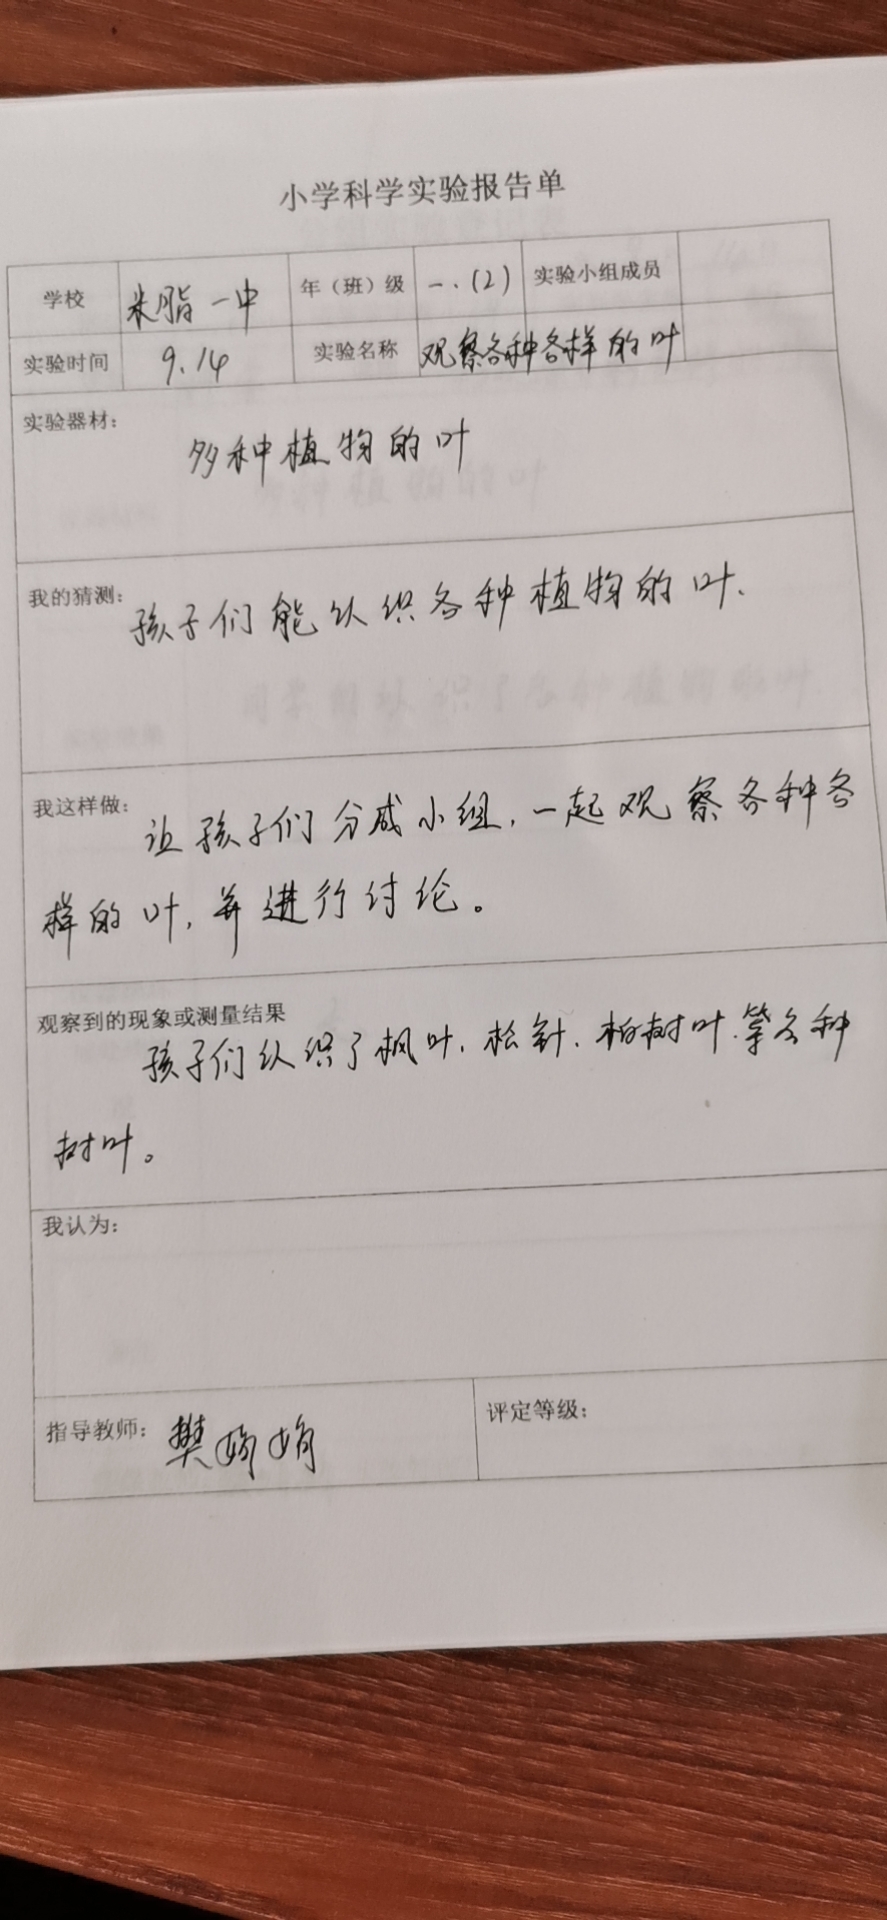 小学科学实验报告单
学校 米脂一中 年（班）级 一.(2) 实验小组成员
实验时间 9.14 实验名称 观察各种各样的叶
实验器材：
多种植物的叶
我的猜测：
孩子们能认识各种植物的叶.
我这样做：
让孩子们分成小组,一起观察各种各
样的叶,并进行讨论。
观察到的现象或测量结果
孩子们认识了枫叶.松针.柏树叶.等各种
树叶。
我认为：
指导教师： 樊 娟 评定等级：